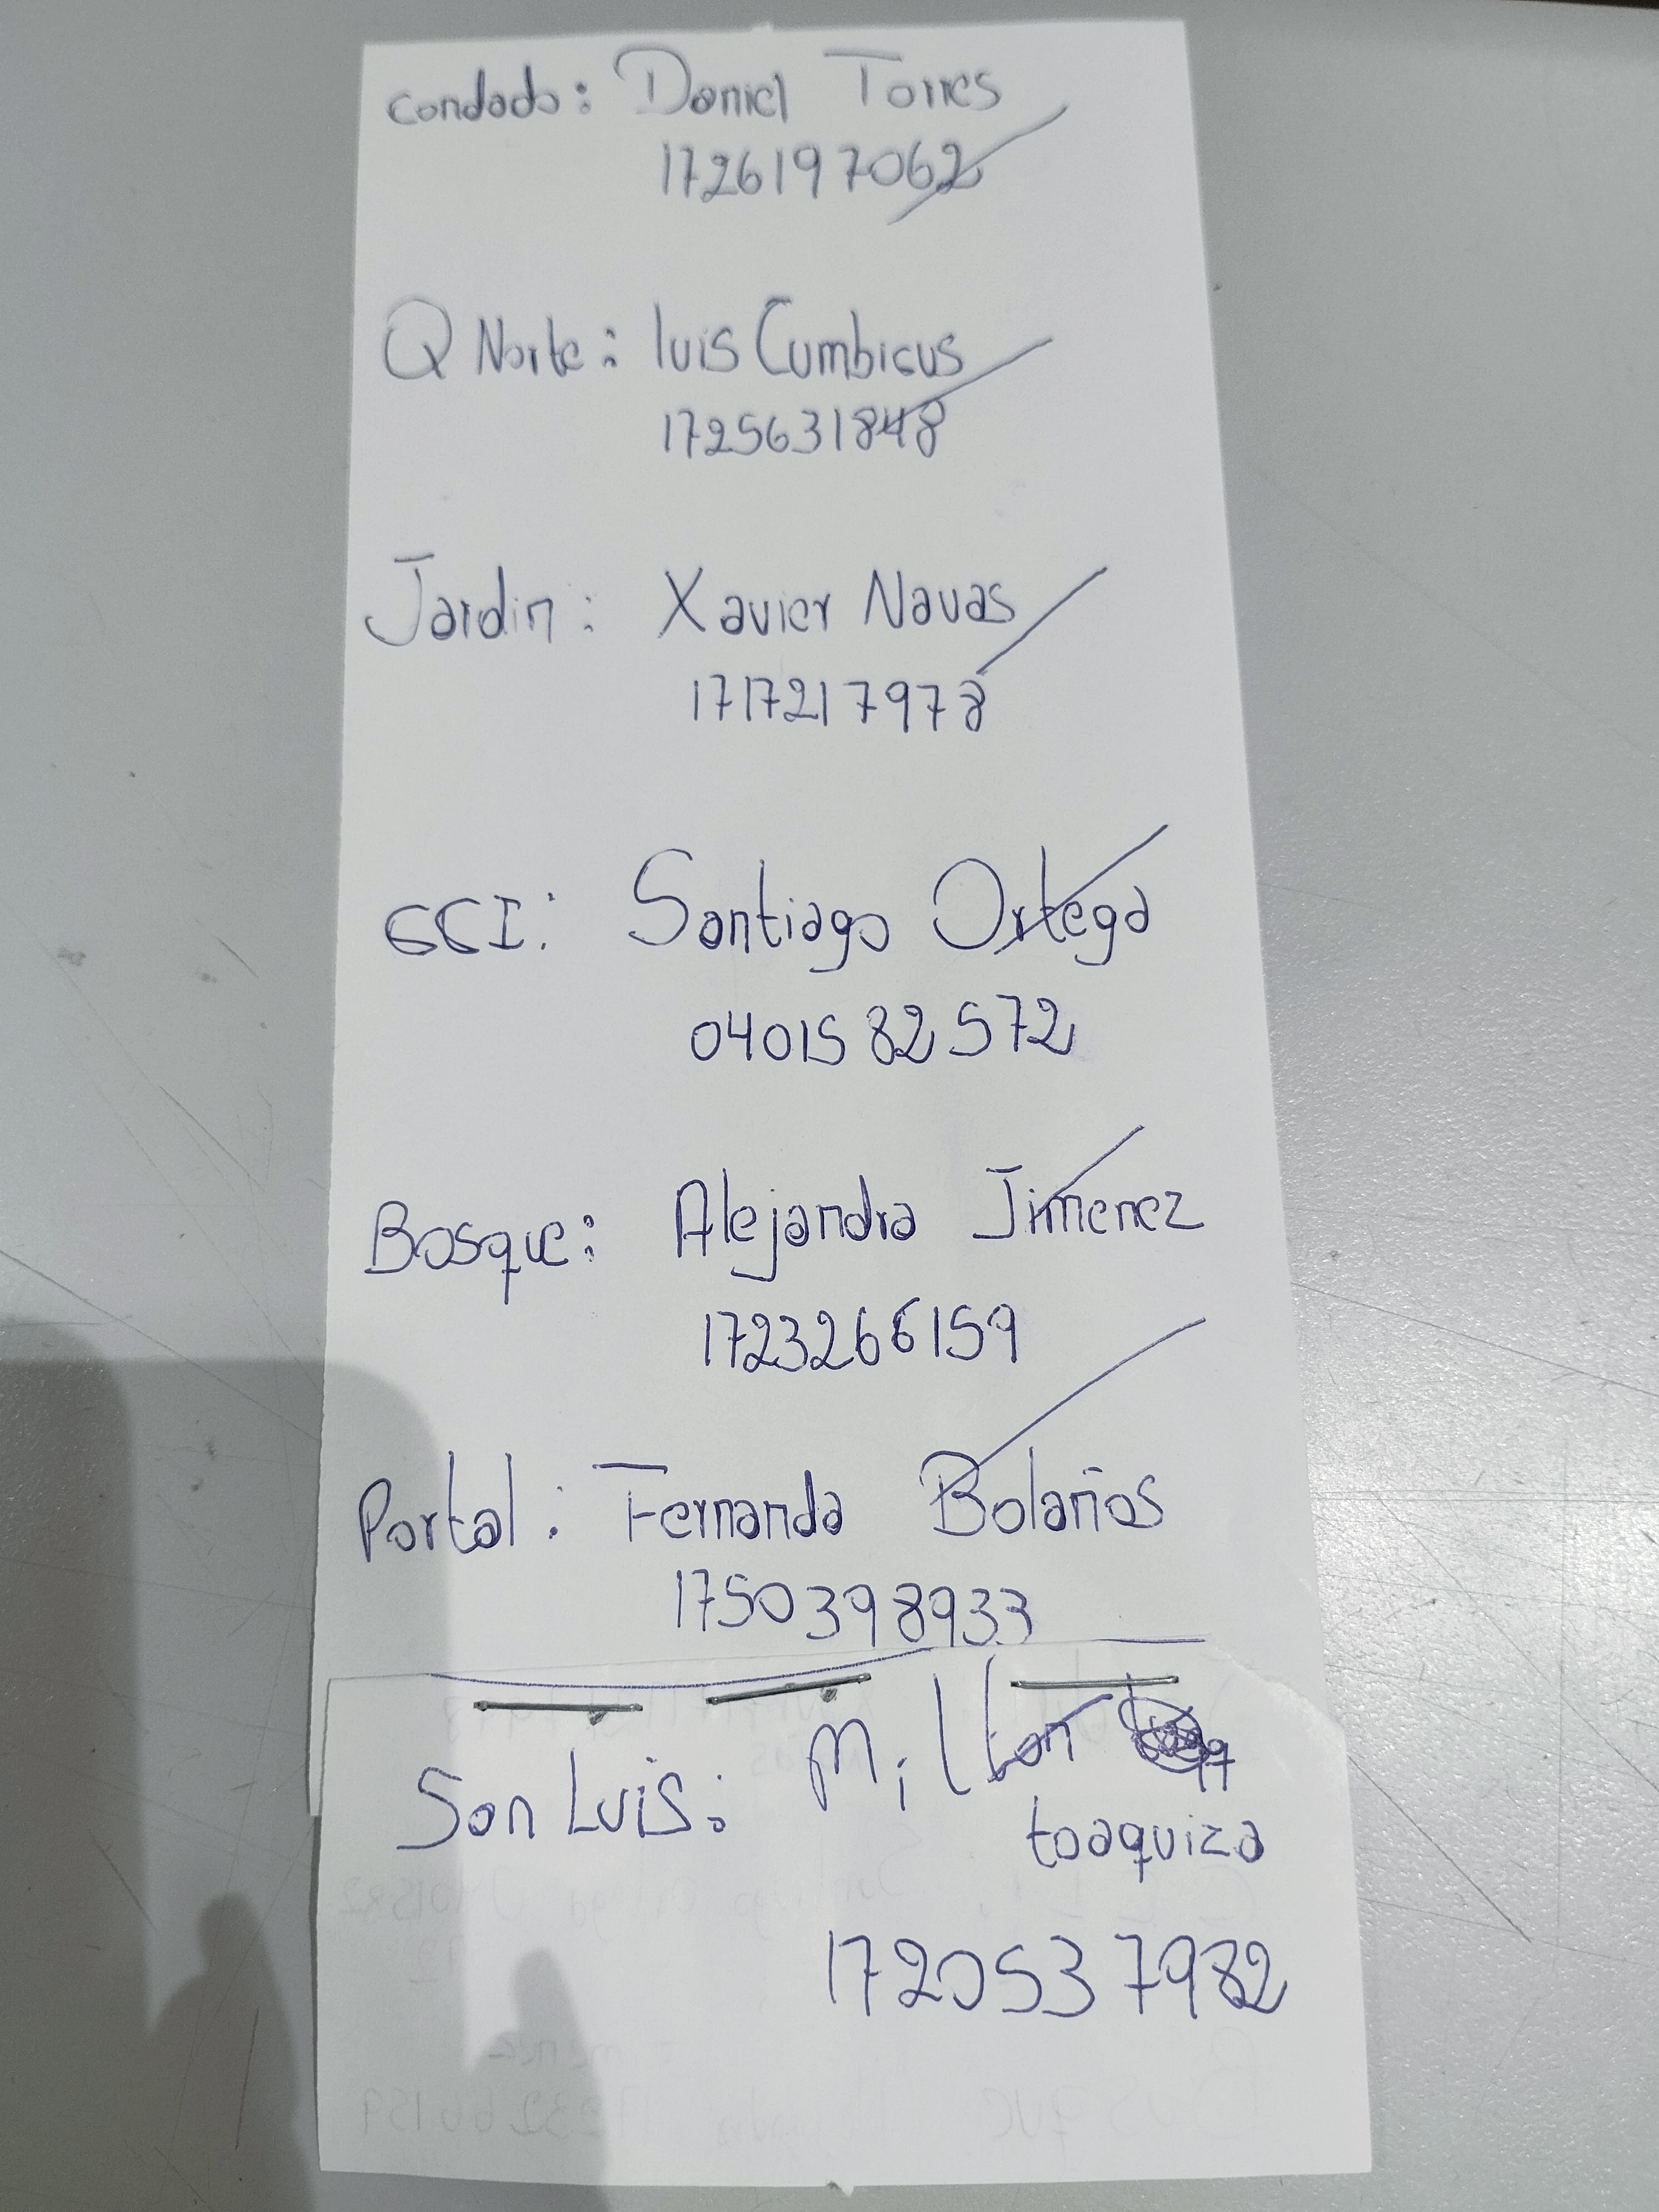 Condado: Daniel Torres
1726197062
Q Norte: luis Cumbicus
1725631848
Jardin: Xavier Navas
1717217978
CCI: Santiago Ortega
0401582572
Bosque: Alejandra Jimenez
1723266159
Portal: Fernanda Bolaños
1750398933
San Luis: Milton
toaquiza
1720537982